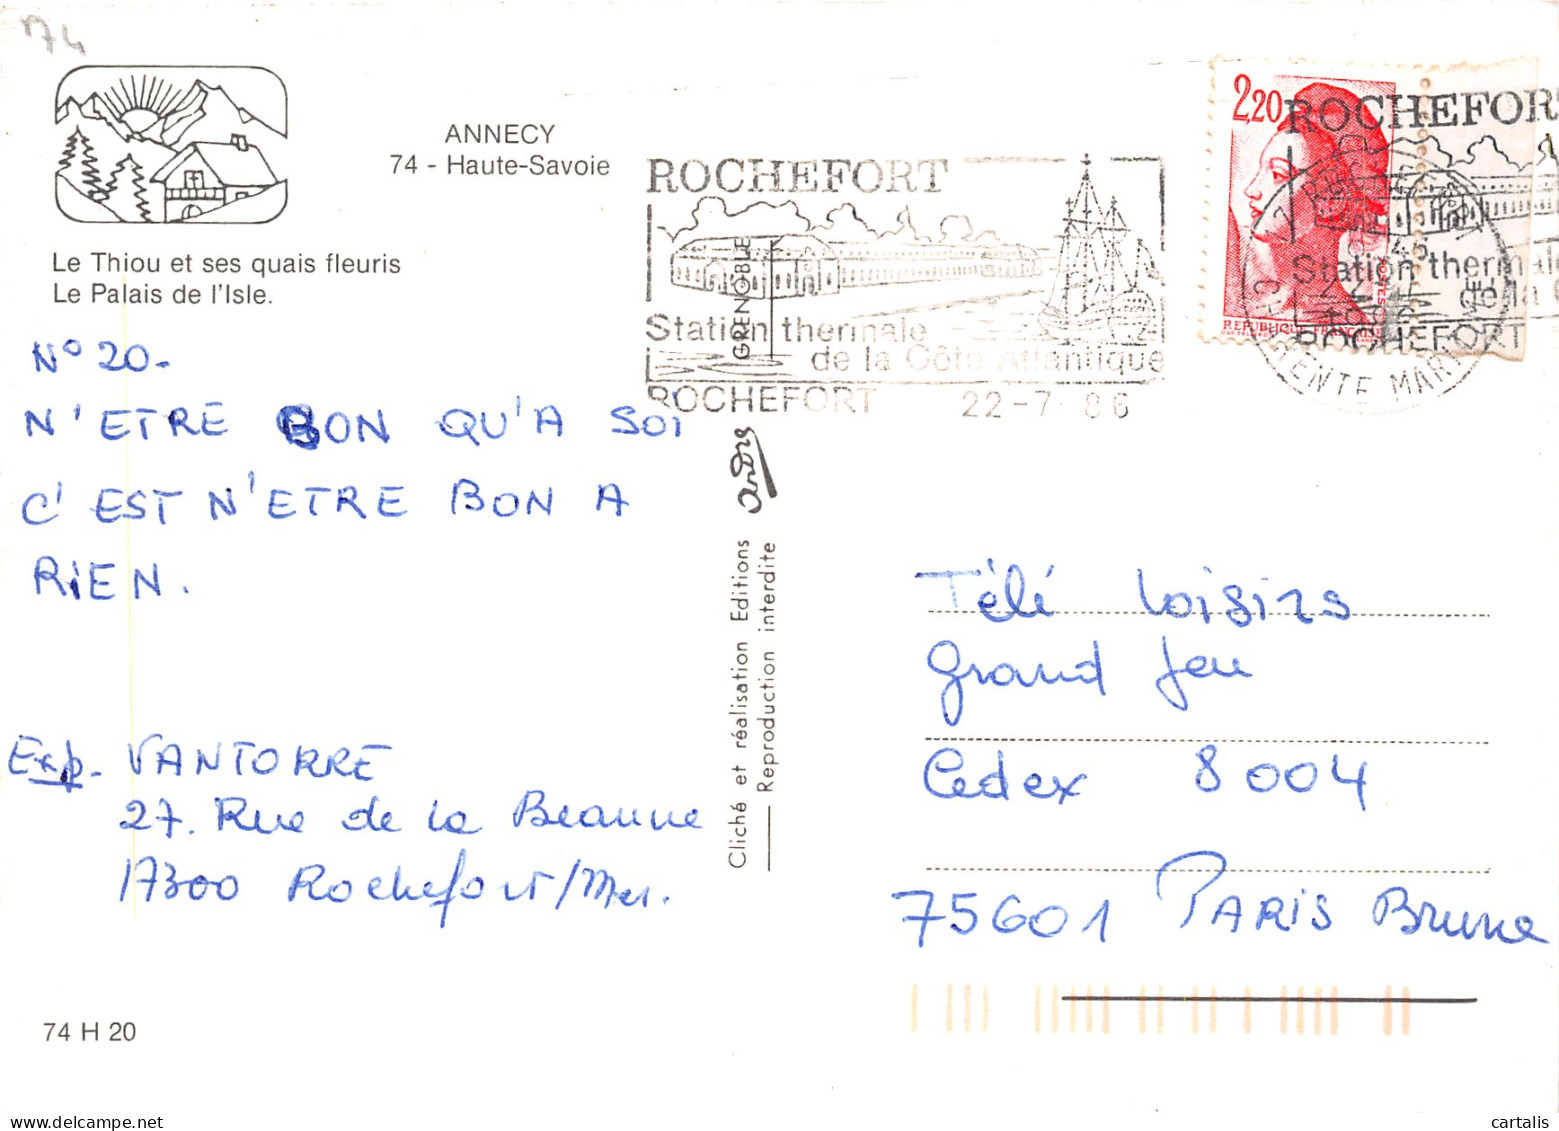 174
ANNECY
74 - Haute-Savoie
Le Thiou et ses quais fleuris
Le Palais de l'Isle.
ROCHEFORT
GRENOBLE
Station thermale
de la Côte Atlantique
ROCHEFORT 22-7 86
2,20
ROCHEFORT
Station thermale
REPUBLIQUE FRANÇAISE
POSTES
ROCHEFORT
CHARENTE MARITIME
N° 20-
N'ETRE BON QU'A SOI
C'EST N'ETRE BON A
RIEN.
Exp. VANTORRE
27. Rue de la Beaune
17300 Rochefort/Mer.
André
Cliché et réalisation Editions
Reproduction interdite
Télé Loisirs
Grand Jeu
Cedex 8004
75601 PARIS Brune
74 H 20
cartalis